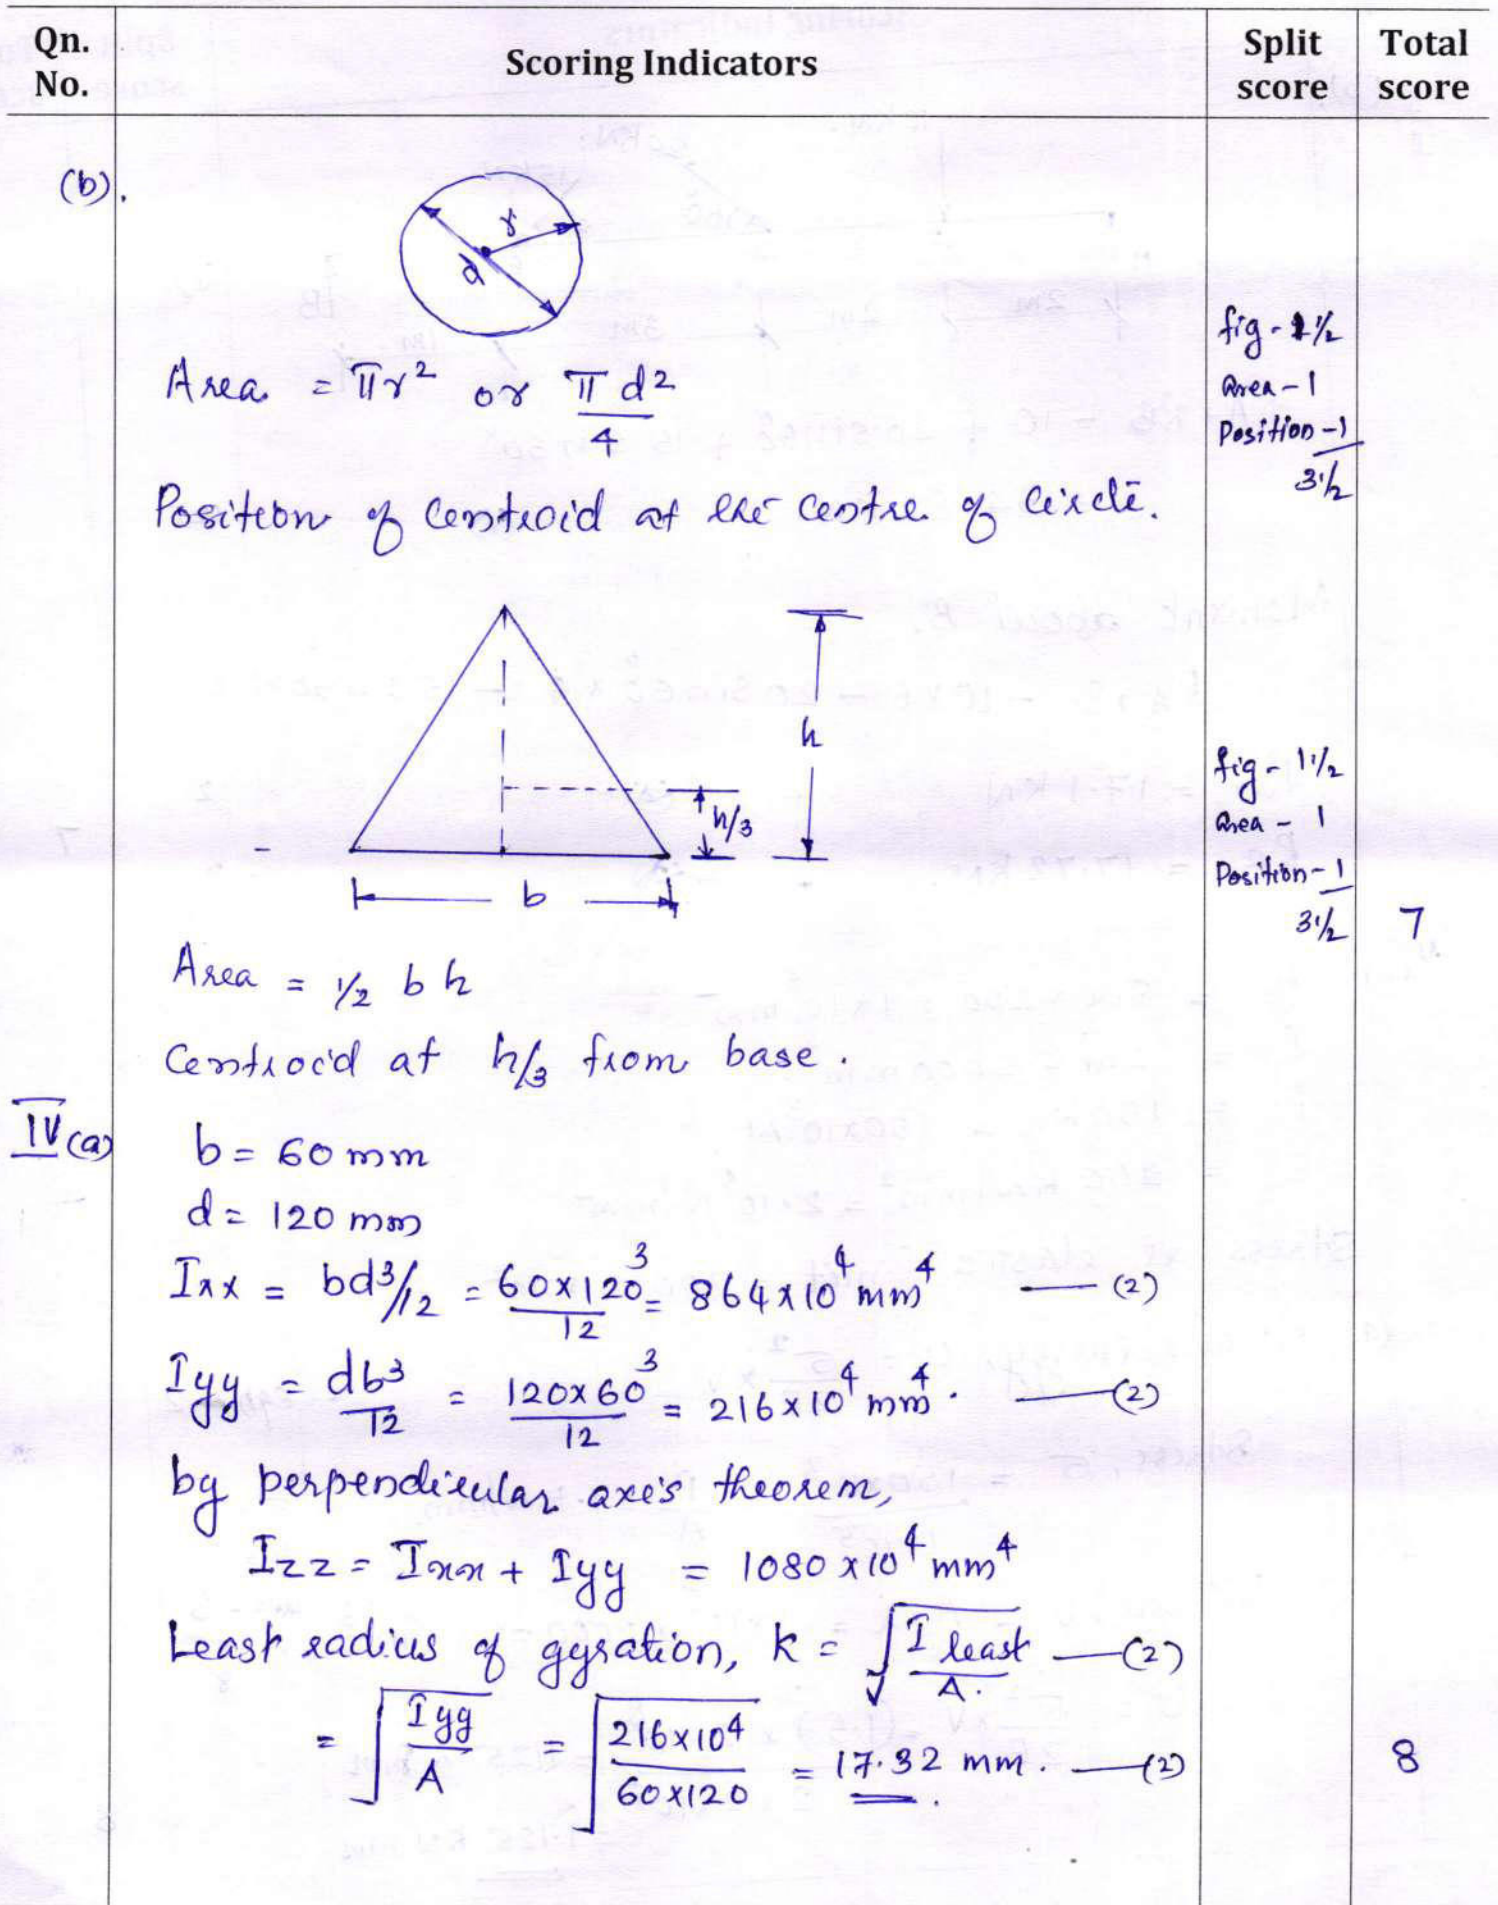 Qn. No.
Scoring Indicators
Split score
Total score
(b).
r
d
Area = πr² or πd²/4
fig - 1½
Area - 1
Position - 1
3½
Position of Centroid at the centre of circle.
h
h/3
b
fig - 1½
Area - 1
Position - 1
3½
7
Area = ½ b h
Centroid at h/3 from base.
IV (a)
b = 60 mm
d = 120 mm
Ixx = bd³/12 = 60×120³/12 = 864×10⁴ mm⁴ — (2)
Iyy = db³/12 = 120×60³/12 = 216×10⁴ mm⁴. — (2)
by perpendicular axis theorem,
Izz = Ixx + Iyy = 1080×10⁴ mm⁴
Least radius of gyration, k = √(I least/A.) — (2)
= √(Iyy/A) = √(216×10⁴/60×120) = 17.32 mm. — (2)
8